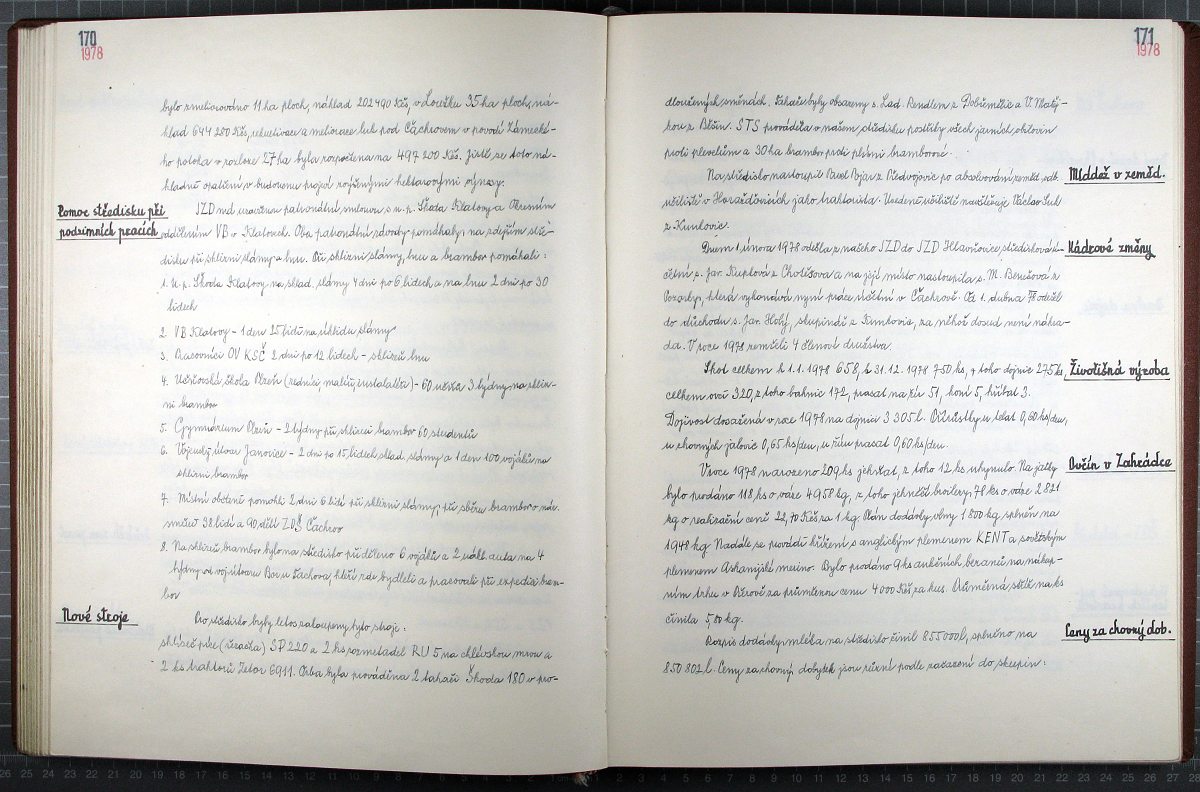 170
1978
bylo zmeliorováno 11 ha ploch, náklad 202 490 Kčs, v Loužku 35 ha ploch, ná-
klad 644 280 Kčs, rekultivace a meliorace luk pod Čachrovem v povodí Zámecké-
ho potoka v rozloze 27 ha byla rozpočtena na 497 200 Kčs. Jistě se toto ná-
kladné opatření v budoucnu projeví zvýšenými hektarovými výnosy.
Pomoc středisku při
podzimních pracích
JZD má uzavřenou patronátní smlouvu s n. p. Škoda Klatovy a Okresním
oddělením VB v Klatovech. Oba patronátní závody pomáhaly na zdejším stře-
disku při sklizni slámy a lnu. Při sklizni slámy, lnu a brambor pomáhali:
1. n. p. Škoda Klatovy na sklad. slámy 4 dny po 6 lidech a na lnu 2 dni po 30
lidech
2. VB Klatovy - 1 den 25 lidí na úklidu slámy
3. Pracovníci OV KSČ 2 dni po 12 lidech - sklizeň lnu
4. Učňovská škola Plzeň (zedníci, malíři, instalatéři) - 60 učňů 3 týdny na skliz-
ni brambor
5. Gymnázium Plzeň - 2 týdny při sklizni brambor 60 studentů
6. Vojenský útvar Janovice - 2 dni po 15 lidech sklad. slámy a 1 den 100 vojáků na
sklizni brambor
7. Místní občané pomohli 2 dni 6 lidí při sklizni slámy, při sběru brambor o ná-
směně 38 lidí a 90 dětí ZDŠ Čachrov
8. Na sklizeň brambor bylo na středisko přiděleno 6 vojáků a 2 nákl. auta na 4
týdny od voj. útvaru Bor u Tachova, kteří zde bydleli a pracovali při expedici bram-
bor
Nové stroje
Pro středisko byly letos zakoupeny tyto stroje:
sklízeč píce (řezačka) SP 220 a 2 ks rozmetadel RU 5 na chlévskou mrvu a
2 ks traktorů Zetor 6911. Orba byla prováděna 2 tahači Škoda 180 v pro-
171
1978
dloužených směnách. Tahače byly obsazeny s. Lad. Rendlem z Dobřemělic a V. Matěj-
kou z Běšin. STS prováděla v našem středisku postřiky všech jarních obilovin
proti plevelům a 30 ha brambor proti plísni bramborové.
Mládež v zeměd.
Na středisko nastoupil Pavel Bojar z Předvojovic po absolvování zeměd. odb.
učiliště v Horažďovicích jako traktorista. Uvedené učiliště navštěvuje Václav Šul
z Kunkovic.
Kádrové změny
Dnem 1. února 1978 odešla z našeho JZD do JZD Hlavňovice, středisková ú-
četní s. Jar. Kuptová z Chotěšova a na její místo nastoupila s. M. Benešová z
která vykonává nyní práce účetní v Čachrově. Od 1. dubna 78 odešel
do důchodu s. Jar. Holý, skupinář z Kunkovic, za něhož dosud není náhra-
da. V roce 1978 zemřeli 4 členové družstva.
Živočišná výroba
Skot celkem k 1. 1. 1978 658, k 31. 12. 1978 750 ks, z toho dojnic 275 ks,
celkem ovcí 320, z toho bahnic 172, prasat na žír 51, koní 5, hříbat 3.
Dojivost dosažená v roce 1978 na dojnici 3 305 l. Přírůstky u telat 0,60 kg/den,
u chovných jalovic 0,65 kg/den, u žíru prasat 0,60 kg/den.
Ovčín v Zahrádce
V roce 1978 narozeno 209 ks jehňat, z toho 12 ks uhynulo. Na jatky
bylo prodáno 118 ks o váze 4958 kg, z toho jehněčí broilery 78 ks o váze 2 821
kg o realizační ceně 22,70 Kčs za 1 kg. Plán dodávky vlny 1 800 kg splněn na
1948 kg. Nadále se provádí křížení s anglickým plemenem KENT a sovětským
plemenem Askanijské merino. Bylo prodáno 9 ks aukčních beranů na nákup-
ním trhu v Přerově za průměrnou cenu 4 000 Kčs za kus. Průměrná stříž na ks
činila 5,80 kg.
Ceny za chovný dob.
Rozpis dodávky mléka na středisko činil 855 000 l, splněno na
850 802 l. Ceny za chovný dobytek jsou různé podle zařazení do skupin: